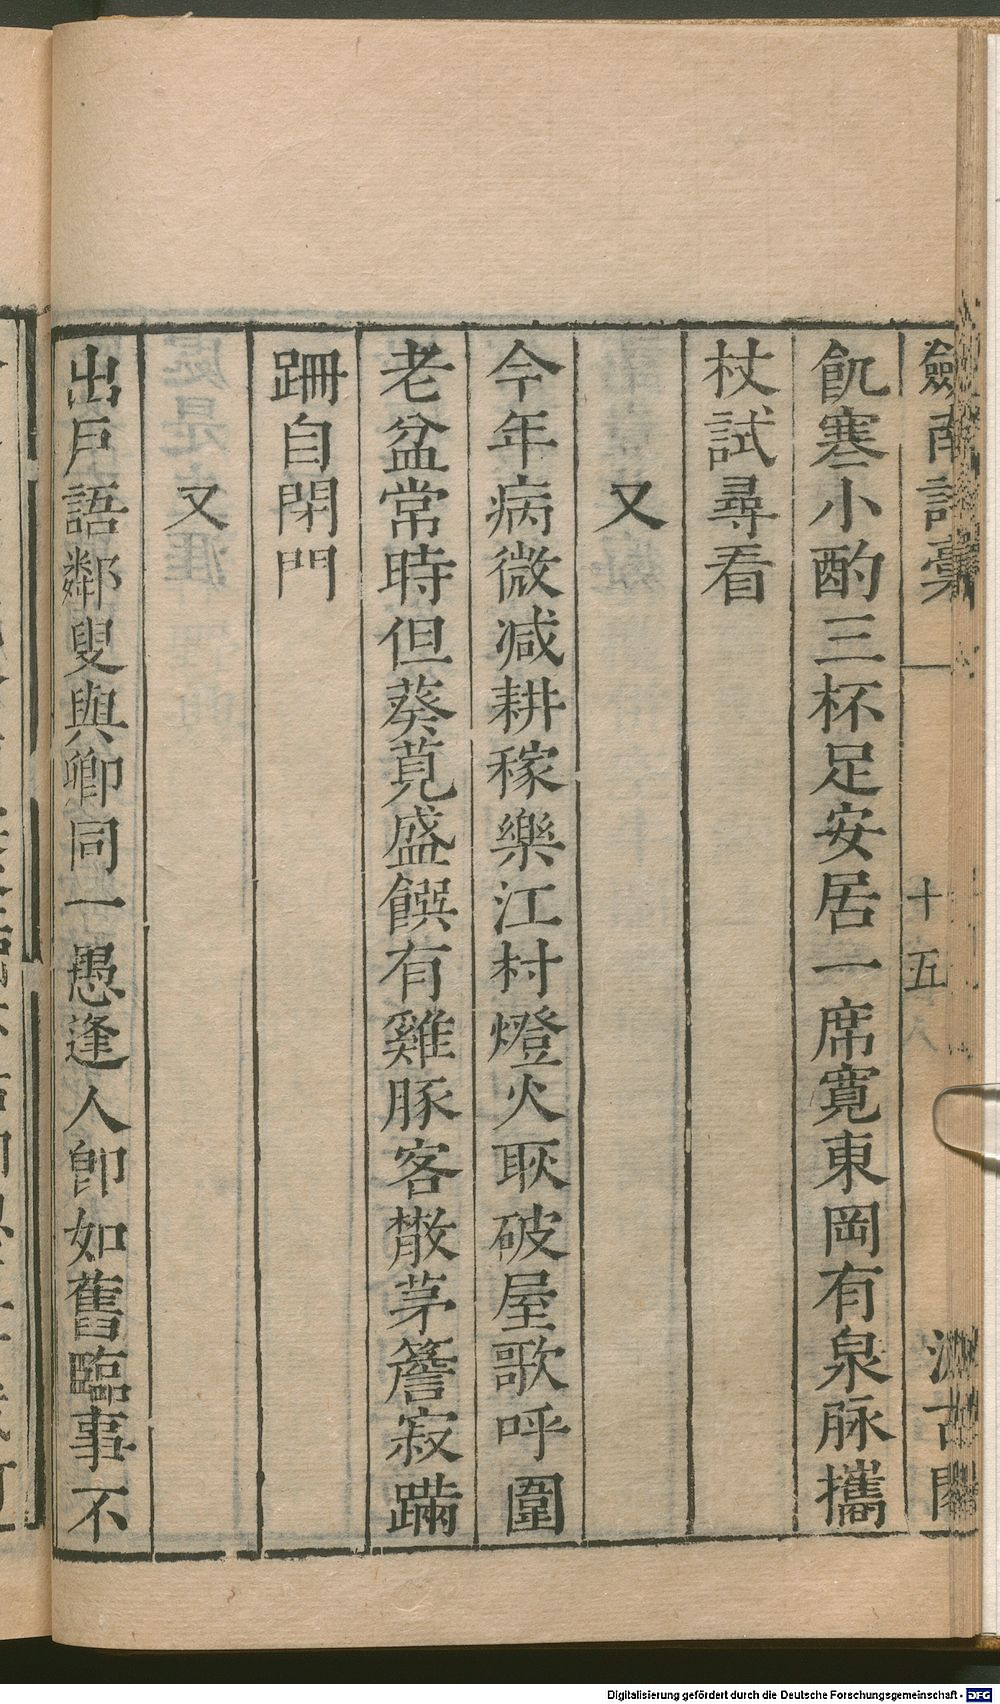 劍南詩稾 十五 汲古閣
飢寒小酌三杯足安居一席寬東岡有泉脉攜
杖試尋看
又
今年病微减耕稼樂江村燈火耿破屋歌呼圍
老盆常時但葵莧盛饌有雞豚客散茅簷寂蹣
跚自閉門
又
出戶語鄰叟與卿同一愚逢人卽如舊臨事不
Digitalisierung gefördert durch die Deutsche Forschungsgemeinschaft - DFG